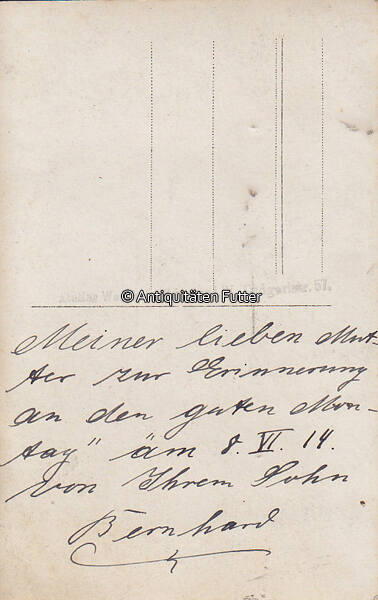 Atelier
© Antiquitäten Futter
str. 57.
Meiner lieben Mut-
ter zur Erinnerung
an den guten Mon-
tag" äm 8. VI. 14.
von Ihrem Sohn
Bernhard